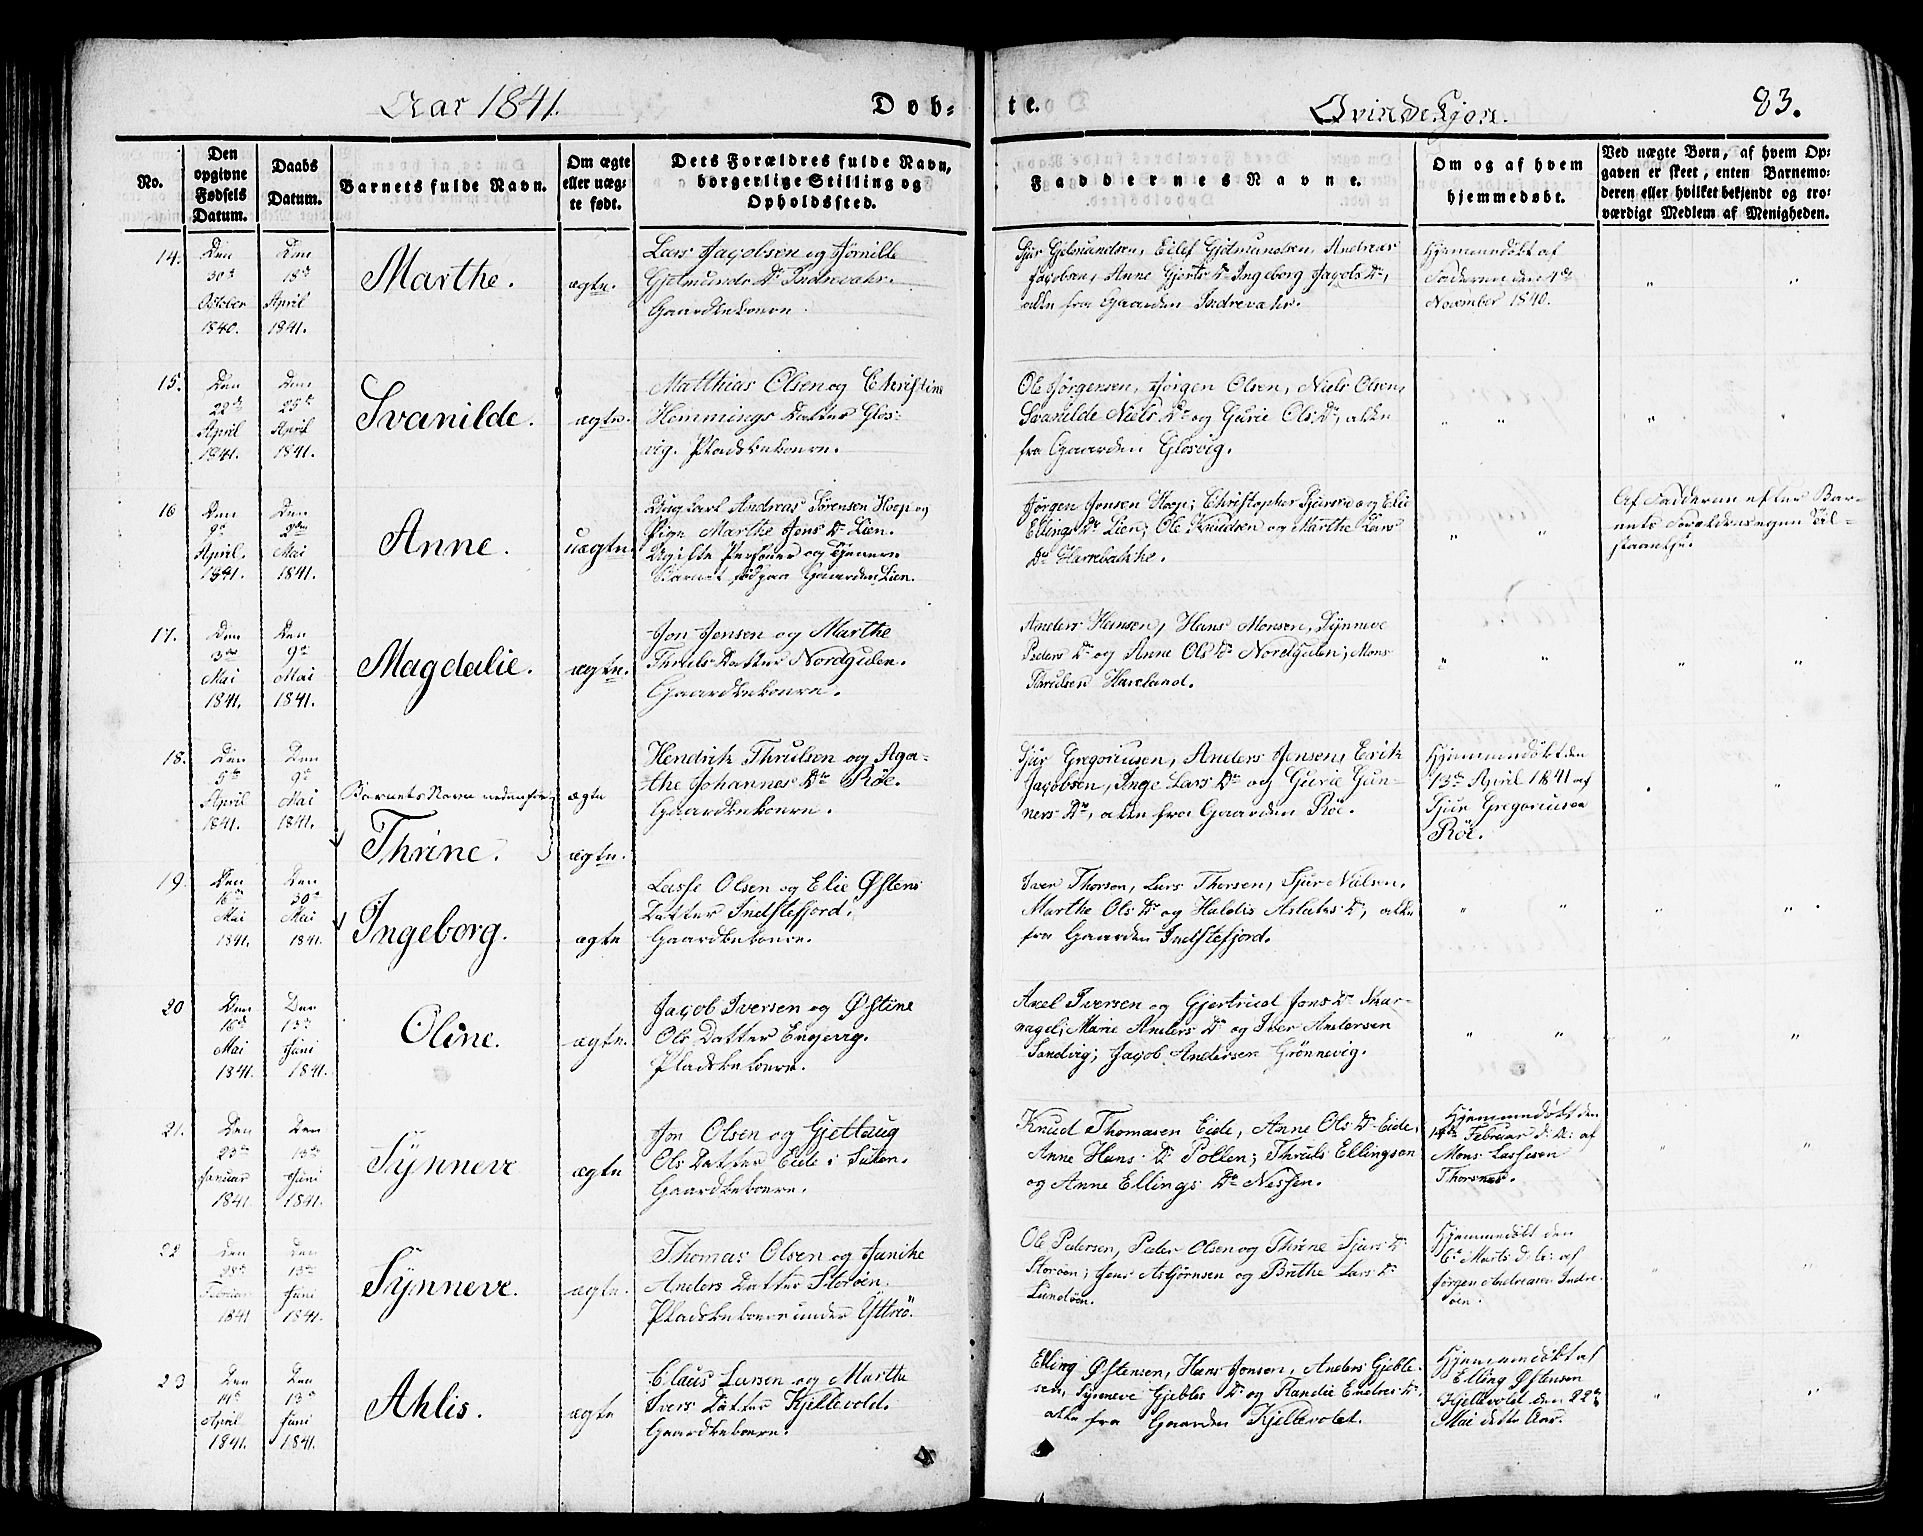 Aar 1841.
Dob-
te.
Qvindekjøn.
83.
No.
Den
opgivne
Fødsels
Datum.
Daabs
Datum.
Barnets fulde Navn.
Om ægte
eller uæg-
te født.
Dets Forældres fulde Navn,
borgerlige Stilling og
Opholdssted.
Faddernes Navne.
Om og af hvem
hjemmedøbt.
Ved uægte Børn, af hvem Op-
gaven er skeet, enten Barnemo-
deren eller hvilket bekjendt og tro-
værdigt Medlem af Menigheden.
14.
Den
30te
October
1840.
Den
18de
April
1841.
Marthe.
ægte.
Lars Jacobsen og
Gjelmunds Dr Indrevahr.
Gaardbeboere.
Sjur Gjelmundsen, Eilef Gjelmundsen, Andreas
Jacobsen, Anne Gjerts Dr Ingeborg Jacobs Dr,
alle fra Gaarden Indrevahr.
Hjemmedøbt af
Faderen den 1ste
November 1840.
" "
15.
Den
22de
April
1841.
Den
25de
April
1841.
Svanilde.
ægte.
Matthias Olsen og Christine
Hemmings Datter Glos-
vig. Pladsbeboere.
Ole Jørgensen, Jørgen Olsen, Niels Olsen,
Svanilde Niels Dr og Gurie Ols Dr, alle
fra Gaarden Glosvig.
" "
" "
16
Den
9de
April.
1841.
Den
2den
Mai
1841.
Anne.
uægte.
Ungkarl Andreas Sørensen Hop og
Pige Marthe Jens Dr Lien.
Ugifte Personer og Tjenere
Barnet født paa Gaarden Lien.
Jørgen Jonsen Hop; Christopher Sjursen og Elie
Ellings Dr Lien; Ole Knudsen og Marthe Lars
Dr Harrebakke.
" "
Af Fadderne efter Bar-
nets Forældres egen Til-
staaelse.
17.
Den
3die
Mai
1841.
Den
9de
Mai
1841.
Magdalie.
ægte.
Jon Jensen og Marthe
Thruls Datter Nordgulen.
Gaardbeboere.
Anders Hansen, Hans Monsen, Synneve
Peders Dr og Anne Ols Dr Nordgulen; Mons
Thrulsen Haveland.
" "
" "
18.
Den
5te
April
1841.
Den
9de
Mai
1841.
Barnets Navn nedenfor
Thrine.
ægte
ægte.
Hendrik Thrulsen og Aga-
the Johannes Dr Röe.
Gaardbeboere.
Sjur Gregoriusen, Anders Jensen, Erik
Jacobsen, Inge Lars Dr og Gurie Gun-
ners Dr, alle fra Gaarden Röe.
Hjemmedøbt den
13de April 1841 af
Sjur Gregoriusen
Röe.
" "
19.
Den
16de
Mai
1841.
Den
30te
Mai
1841.
Ingeborg.
ægte
Lasse Olsen og Elie Østens
Datter Indstefjord.
Gaardbeboere.
Iver Thorsen, Lars Thorsen, Sjur Nielsen,
Marthe Ols Dr og Haldis Aslaks Dr, alle
fra Gaarden Indstefjord.
" "
" "
20
Den
16de
Mai
1841.
Den
13de
Juni
1841.
Oline.
ægte.
Jacob Iversen og Østine
Ols Datter Engevig.
Pladsbeboere.
Axel Iversen og Gjertrud Jons Dr Skar-
nagel; Marie Anders Dr og Iver Andersen
Sandvig; Jacob Andersen Grønnevig.
" "
" "
21.
Den
23de
Januar
1841.
Den
13de
Juni
1841.
Synneve
ægte
Jon Olsen og Gjetlaug
Ols Datter Eide i Sulen.
Gaardbeboere.
Knud Thomasen Eide, Anne Ols Dr Eide,
Anne Hans Dr Pollen; Thruls Ellingsen
og Anne Ellings Dr Nessen.
Hjemmedøbt den
14de Februar d: A: af
Mons Lassesen
Thorsnes.
" "
22
Den
28de
Februar
1841
Den
13de
Juni
1841.
Synneve.
ægte.
Thomas Olsen og Janike
Anders Datter Storöen.
Pladsbeboere under Ÿttrö.
Ole Pedersen, Peder Olsen og Thrine Sjurs Dr
Storöen; Jens Asbjørnsen og Brithe Lars Dr
Lundöen.
Hjemmedøbt den
6te Marts d: A: af
Jørgen Andreasen Indre-
öen.
" "
23
Den
14de
April
1841.
Den
13de
Juni
1841.
Ahlis.
ægte
Claus Larsen og Marthe
Ivers Datter Kjellevold.
Gaardbeboere.
Elling Østensen, Hans Jonsen, Anders Gjeble-
sen, Synneve Gjebles Dr og Randie Endres Dr
alle fra Gaarden Kjellevold.
Hjemmedøbt af
Elling Østensen
Kjellevold den 22de
Mai dette Aar.
" "